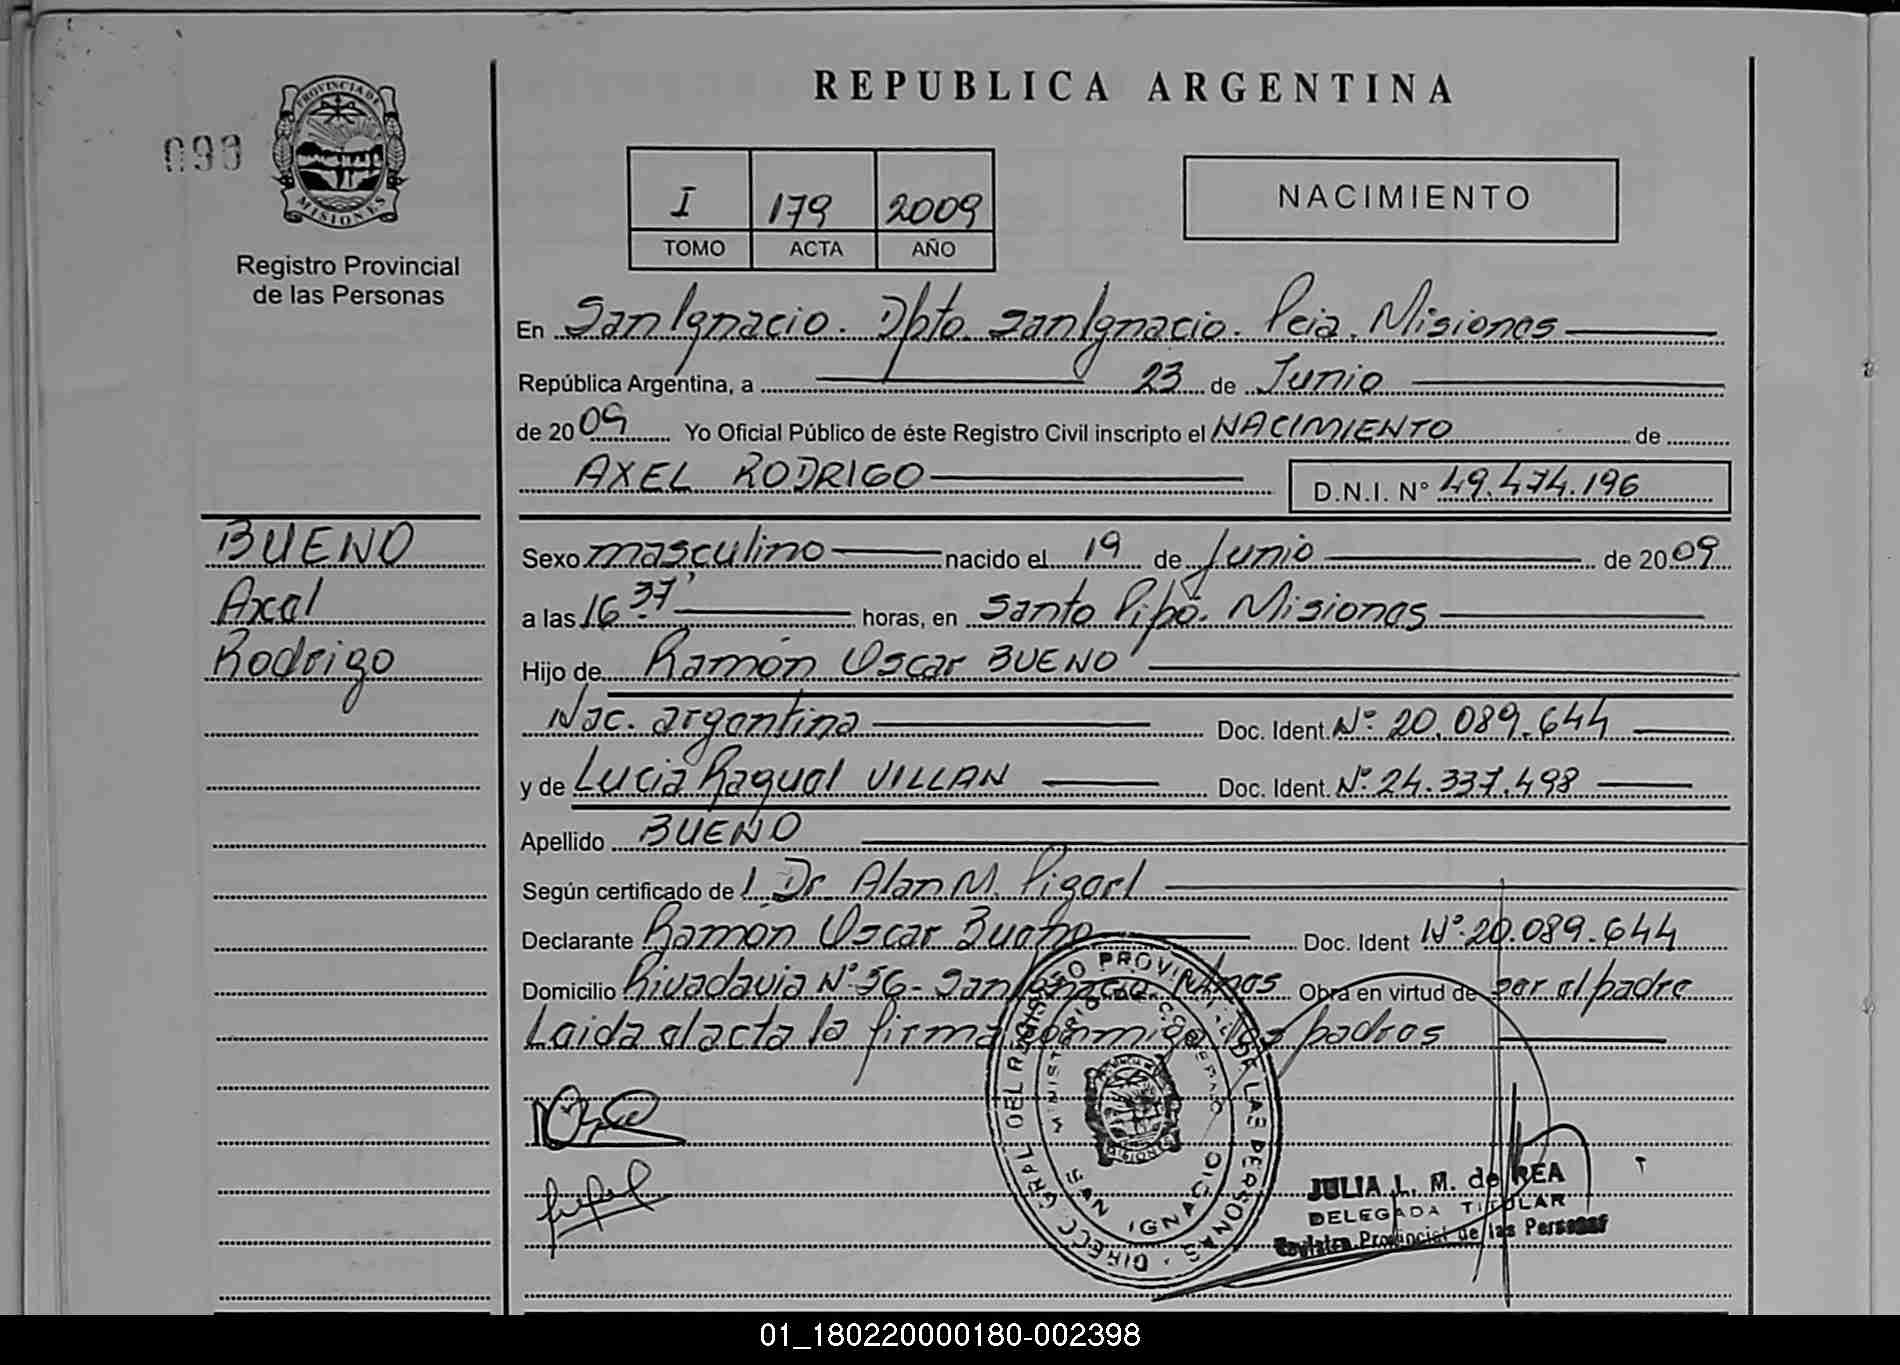 REPUBLICA ARGENTINA
090
PROVINCIA DE
MISIONES
Registro Provincial
de las Personas
I 179 2009
TOMO ACTA AÑO
NACIMIENTO
En San Ignacio. Dpto. San Ignacio. Pcia. Misiones
República Argentina, a 23 de Junio
de 2009 Yo Oficial Público de éste Registro Civil inscripto el NACIMIENTO de
AXEL RODRIGO D.N.I. N° 49.474.196
BUENO
Axel
Rodrigo
Sexo masculino nacido el 19 de Junio de 2009
a las 16 37' horas, en Santo Pipó. Misiones
Hijo de Ramón Oscar BUENO
Nac. argentina Doc. Ident. N° 20.089.644
y de Lucia Raquel VILLAN Doc. Ident. N° 24.337.498
Apellido BUENO
Según certificado de l Dr. Alan M.
Declarante Ramón Oscar Bueno Doc. Ident N° 20.089.644
Domicilio Rivadavia N° 56 - San Ignacio. Mnes Obra en virtud de ser el padre
Leida el acta la firma conmigo los padres
DIRECC. GRAL. DEL REGISTRO PROVINCIAL DE LAS PERSONAS
MINISTERIO DE GOBIERNO
MISIONES
SAN IGNACIO
JULIA L. M. de REA
DELEGADA TITULAR
Registro Provincial de las Personas
01_180220000180-002398